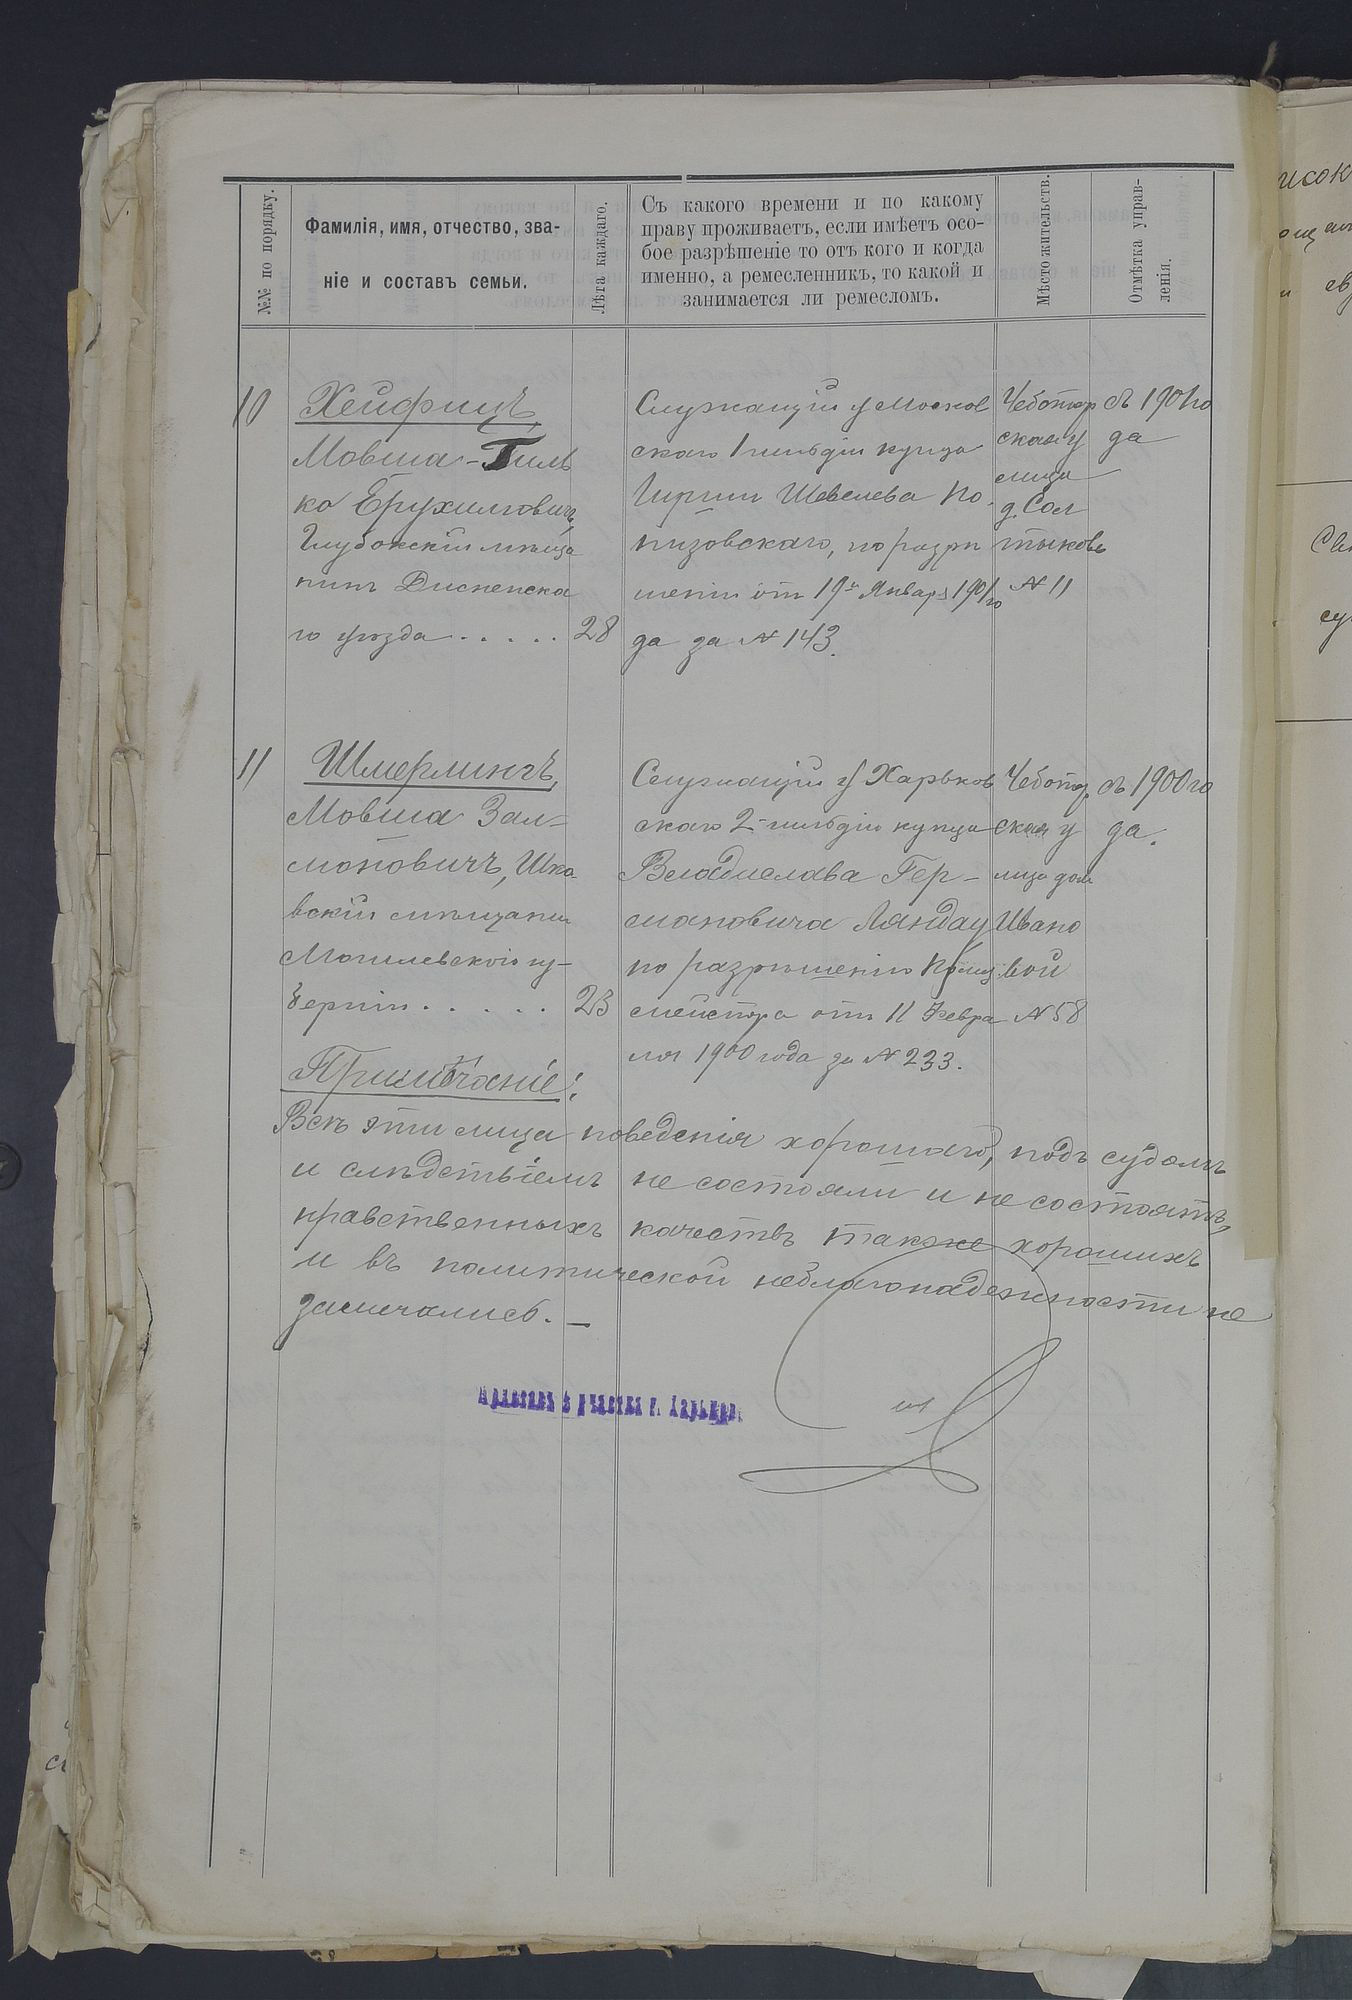 №№ по порядку.
Фамилія, имя, отчество, зва-
ніе и составъ семьи.
Лѣта каждаго.
Съ какого времени и по какому
праву проживаетъ, если имѣетъ осо-
бое разрѣшеніе то отъ кого и когда
именно, а ремесленникъ, то какой и
занимается ли ремесломъ.
Мѣсто жительств.
Отмѣтка управ-
ленія.
10
Хейфицъ,
Мовша-Гиль
ко Ерухимовичъ,
Глубокскій мѣща
нинъ Дисненска
го уѣзда . . . . . 28
Служащій у Москов
скаго 1 гильдіи купца
Гирши Шевелева По
низовскаго, по разрѣ
шенію отъ 19го Января 1901 го
да за № 143.
Чеботар
ская у
лица
д. Сол
тыковъ
№ 11
съ 1901 го
да
11
Шмерлингъ,
Мовша Зал-
мановичъ, Шкло
вскій мѣщанин
Могилевской гу-
берніи . . . . . 23
Служащій у Харьков
скаго 2 гильдіи купца
Владислава Гер-
мановича Ландау
по разрѣшенію Полиц
мейстера отъ 11 Февра
ля 1900 года за № 233.
Чебота
ская у
лица дом
Ивано
вой
№ 58
съ 1900 го
да.
Примѣчаніе:
Всѣ эти лица поведенія хорошаго, подъ судомъ
и слѣдствіемъ не состояли и не состоятъ,
нравственныхъ качествъ также хорошихъ
и въ политической неблагонадежности не
замечались. —
Приставъ 2 участка г. Харькова.
исок